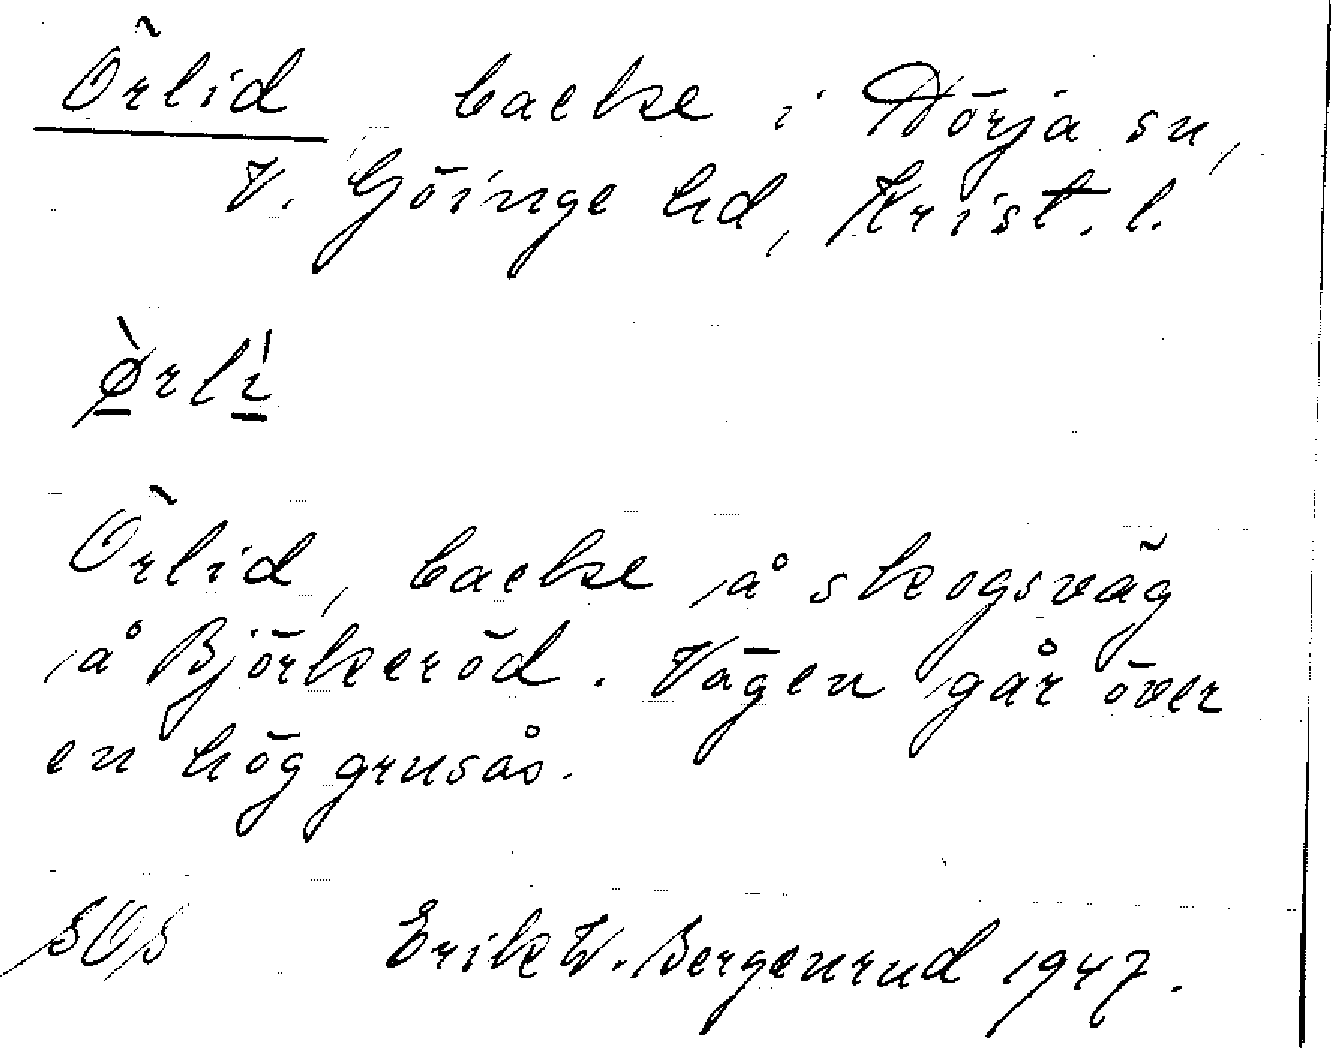 Örlid backe i Nörja sn,
V. Göinge hd, Krist. l.
Ørlı
Örlid, backe å skogsväg
å Björkeröd. Vägen går över
en hög grusås.
SOS Erik W. Bergenrud 1947.